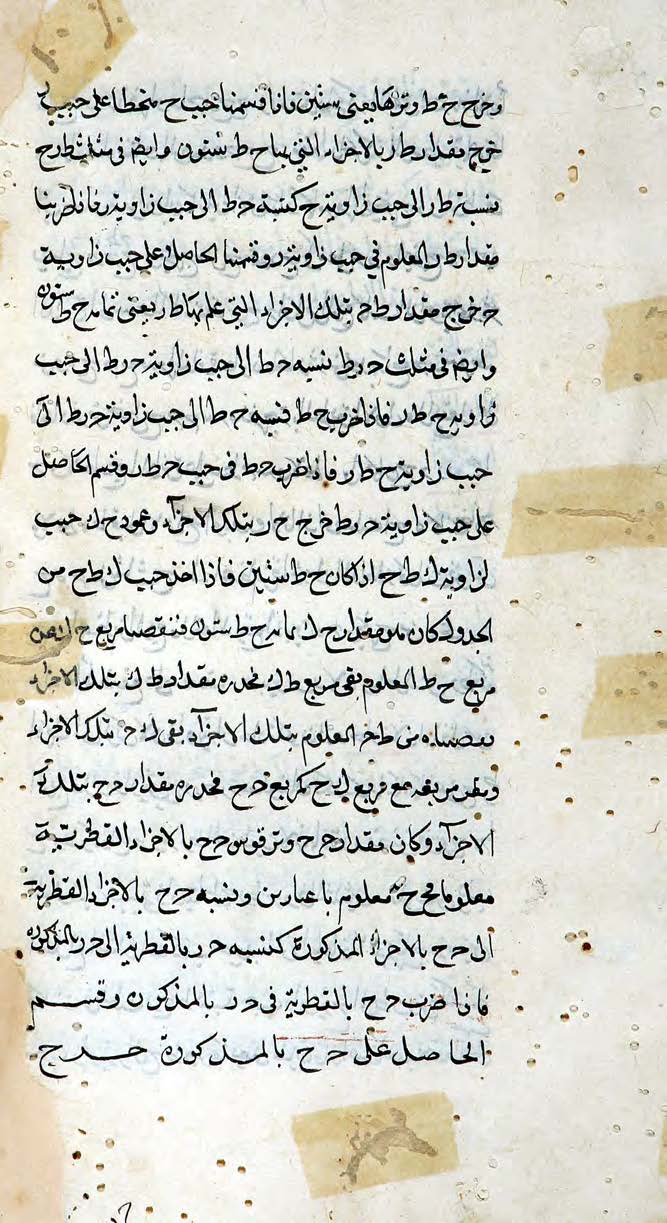 وخرج ح ط وترها يعنى ستين فاذا قسمنا جيب ح منحطا على جيب
خرج مقدار ط ر بالاجزاء التى بها ح ط ستون وايضا فى مثلث ط ر ح
نسبة ط ر الى جيب زاوية ح كنسبة ح ط الى جيب زاوية ر فاذا ضربنا
مقدار ط ر المعلوم فى جيب زاوية ر وقسمنا الحاصل على جيب زاوية
ح خرج مقدار ط ح بتلك الاجزاء التى علم بها ط ر يعنى بما به ح ط ستون
وايضا فى مثلث ح ر ط نسبه ح ط الى جيب زاوية ح ر ط الى جيب
زاوية ح ط ر فاذا ضرب ح ط فنسبه ح ط الى جيب زاوية ح ر ط الى
جيب زاوية ح ط ر فاذا ضرب ح ط فى جيب ح ط ر وقسم الحاصل
على جيب زاوية ح ر ط خرج ح ر بتلك الاجزآء وعمود ح ك جيب
لزاوية ك ط ح اذ كان ح ط ستين فاذا اخذ جيب ك ط ح من
الجدول كان هو مقدار ح ك بما به ح ط ستون فننقصها مربع ح ك من
مربع ح ط المعلوم بقى مربع ط ك فجذره مقدار ط ك بتلك الاجزاء
نقصناه من ط ح المعلوم بتلك الاجزآء بقى ك ح بتلك الاجزاء
مربعه مع مربع ك ح كمربع ح ح فجذره مقدار ح ح بتلك
الاجزآء وكان مقدار ح ح وتر قوس ح ح بالاجزاء القطرية
معلوما فح ح معلوم باعتبارين ونسبه ح ح بالاجزاء القطرية
الى ح ح بالاجزاء المذكورة كنسبه ح ر بالقطرية الى ح ر بالمذكوره
فاذا ضرب ح ح بالقطرية فى ح ر بالمذكورة وقسم
الحاصل على ح ح بالمذكورة خرج